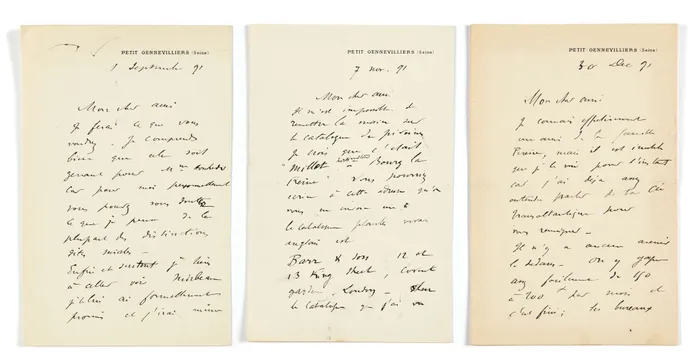 PETIT GENNEVILLIERS (Seine)
1 Septembre 91
Mon cher ami
Je ferai ce que vous
voudrez. Je comprends
bien que cela soit
genant pour Mme
car pour moi personnellement
vous pouvez vous douter
ce que je pense de la
plupart des distinctions
dites sociales –
Enfin et surtout j'ai bien
à aller voir Mirbeau
je lui ai formellement
promis et j'irai même
PETIT GENNEVILLIERS (Seine)
7 nov. 91
Mon cher ami
Il m'est impossible de
remettre la main sur
le catalogue de pivoines
Je crois que c'était
"Millet à Bourg la
Reine" – Vous pourriez
écrire à cette adresse qu'on
vous en envoie un &
le catalogue plantes vivaces
anglais est
Barr & sons 12 et
13 King Street, Covent
garden, London –
le catalogue que j'ai vu
PETIT GENNEVILLIERS (Seine)
30 Dec 91
Mon cher ami
Je connais effectivement
un ami de la famille
Pereire, mais il est inutile
que je le voie pour l'instant
car j'ai déjà assez
entendu parler de la Cie
transatlantique pour
vous renseigner –
Il n'y a aucun avenir
là dedans – On y gagne
assez facilement de 150
à 200 f par mois et
c'est fini; les bureaux